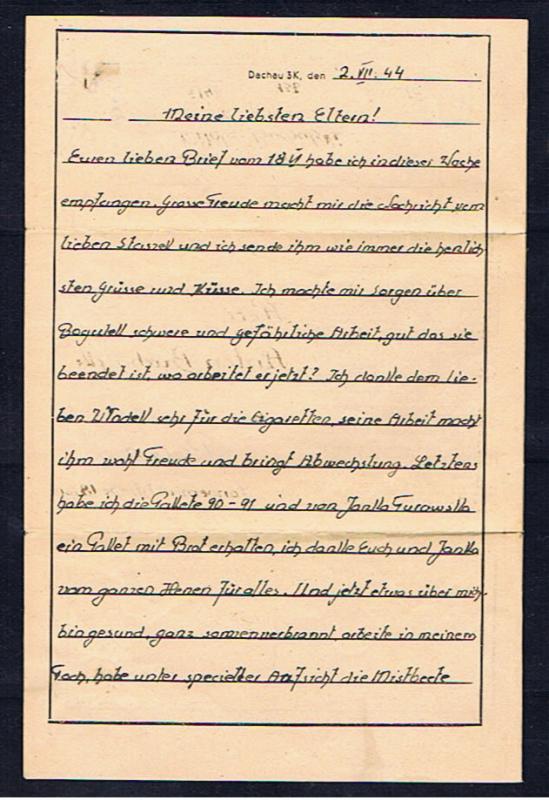 Dachau 3K, den 2. VII. 44
Meine liebsten Eltern!
Euren lieben Brief vom 18 VI habe ich in dieser Woche
empfangen. Grosse Freude macht mir die Nachricht vom
lieben Staszek und ich sende ihm wie immer die herzlich
sten Grüsse und Küsse. Ich machte mir Sorgen über
schwere und gefährliche Arbeit, gut das sie
beendet ist, wo arbeitet er jetzt? Ich danke dem lie-
ben Wladek sehr für die Cigaretten, seine Arbeit macht
ihm wohl Freude und bringt Abwechslung. Letztens
habe ich die Pakete 90-91 und von Janka Turowska
ein Paket mit Brot erhalten, ich danke Euch und Janka
vom ganzen Herzen für alles. Und jetzt etwas über mich.
bin gesund, ganz sonnenverbrannt, arbeite in meinem
Fach, habe unter specieller Aufsicht die Mistbeete